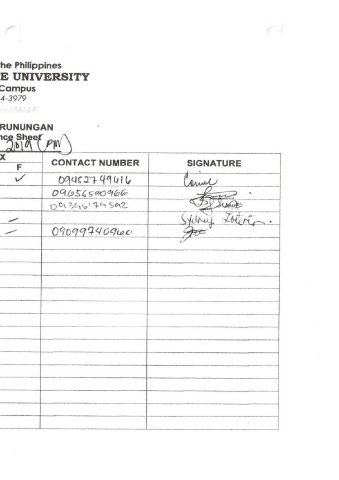 he Philippines
E UNIVERSITY
Campus
4-3979
RUNUNGAN
nce Sheet
2019 (PM)
X
F CONTACT NUMBER SIGNATURE
✓ 09452749616
09656590966
— Sydney
— 09099740960